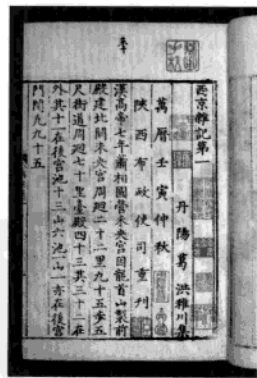 西京雜記第一
丹陽葛 洪稚川集
萬曆壬寅仲秋
陝西布政使司重刊
漢高帝七年蕭相國營未央宮因龍首山製前
殿建北闕未央宮周迴二十二里九十五步五
尺街道周迴七十里臺殿四十三其三十二在
外其十一在後宮池十三山六池一山一亦在後宮
門闥凡九十五